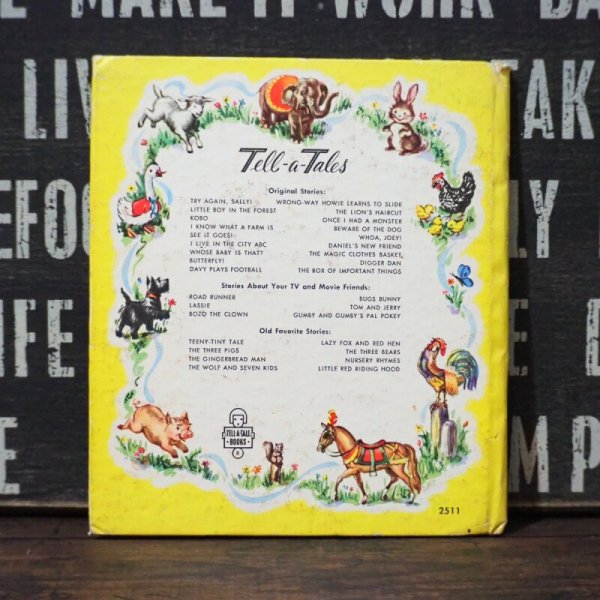 MAKE IT WORK
LIV
AK
EFO
LY
IFE
E
MP
Tell-a-Tales
Original Stories:
TRY AGAIN, SALLY!
LITTLE BOY IN THE FOREST
KOBO
I KNOW WHAT A FARM IS
SEE IT GOES!
I LIVE IN THE CITY ABC
WHOSE BABY IS THAT?
BUTTERFLY!
DAVY PLAYS FOOTBALL
WRONG-WAY HOWIE LEARNS TO SLIDE
THE LION'S HAIRCUT
ONCE I HAD A MONSTER
BEWARE OF THE DOG
WHOA, JOEY!
DANIEL'S NEW FRIEND
THE MAGIC CLOTHES BASKET
DIGGER DAN
THE BOX OF IMPORTANT THINGS
Stories About Your TV and Movie Friends:
ROAD RUNNER
LASSIE
BOZO THE CLOWN
BUGS BUNNY
TOM AND JERRY
GUMBY AND GUMBY'S PAL POKEY
Old Favorite Stories:
TEENY-TINY TALE
THE THREE PIGS
THE GINGERBREAD MAN
THE WOLF AND SEVEN KIDS
LAZY FOX AND RED HEN
THE THREE BEARS
NURSERY RHYMES
LITTLE RED RIDING HOOD
TELL-A-TALE
BOOKS
2511